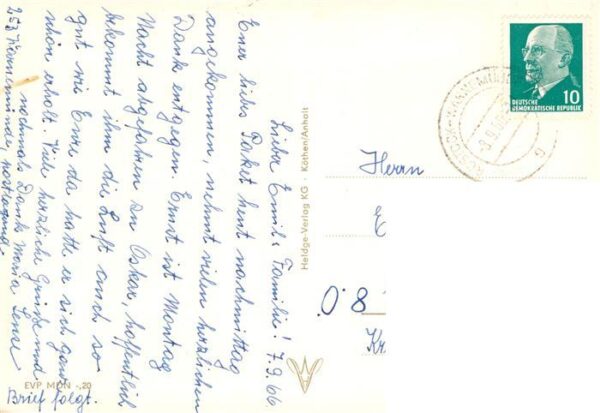 Liebe Emil's Familie! 7.9.66
Euer liebes Paket heut nachmittag
angekommen, nehmt vielen herzlichen
Dank entgegen. Ernst ist Montag
Nacht abgefahren zu Oskar, hoffentlich
bekommt ihm die Luft auch so
gut wie Erre da hatte er sich ganz
schön erholt. Viele herzliche Grüße und
nochmals Dank Maria
253 Warnemünde, postlagernd
Brief folgt.
EVP MDN -,20
Heldge-Verlag KG · Köthen/Anhalt
DEUTSCHE
DEMOKRATISCHE REPUBLIK
10
Herrn
E
08
Kr